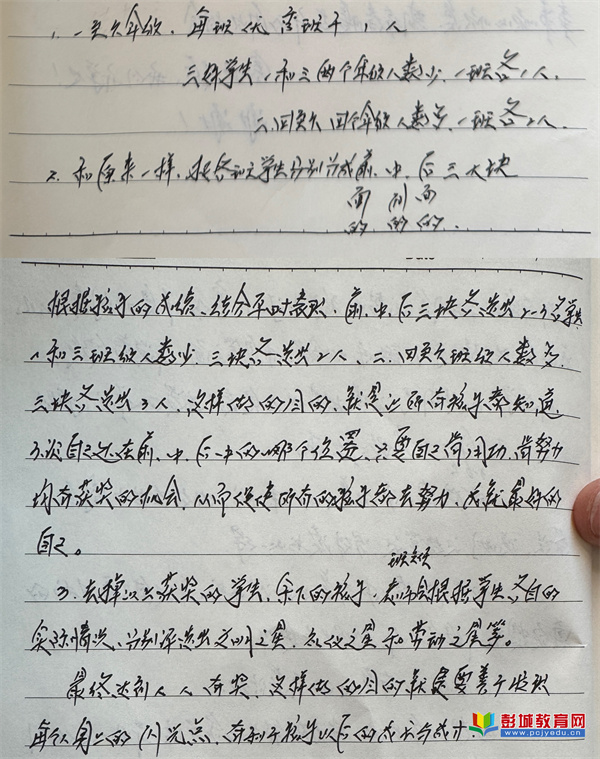 1. 一至六年级，每班优秀班干1人
三好学生，一和三两个年级人数少，一班各1人，
二四五六四个年级人数多，一班各2人。
2. 和原来一样，把各班学生分别分成前、中、后三大块
面 间 面
的 的 的
根据孩子的成绩，结合平时表现，前、中、后三块各选出2-3名学生
一和三班级人数少，三块各选出2人，二、四五六班级人数多，
三块各选出3人，这样做的目的，就是让所有孩子都知道，
不论自己处在前、中、后中的哪个位置，只要自己肯用功，肯努力
均有获奖的机会，从而促使所有的孩子都去努力，成就最好的
自己。
班主任
3. 去掉以上获奖的学生，余下的孩子，老师会根据学生各自的
实际情况，分别评选出文明之星，礼仪之星和劳动之星等。
最终达到人人有奖，这样做的目的就是要善于发现
每个人身上的闪光点，有利于孩子以后的成长与成才。
彭城教育网
www.pcjyedu.cn